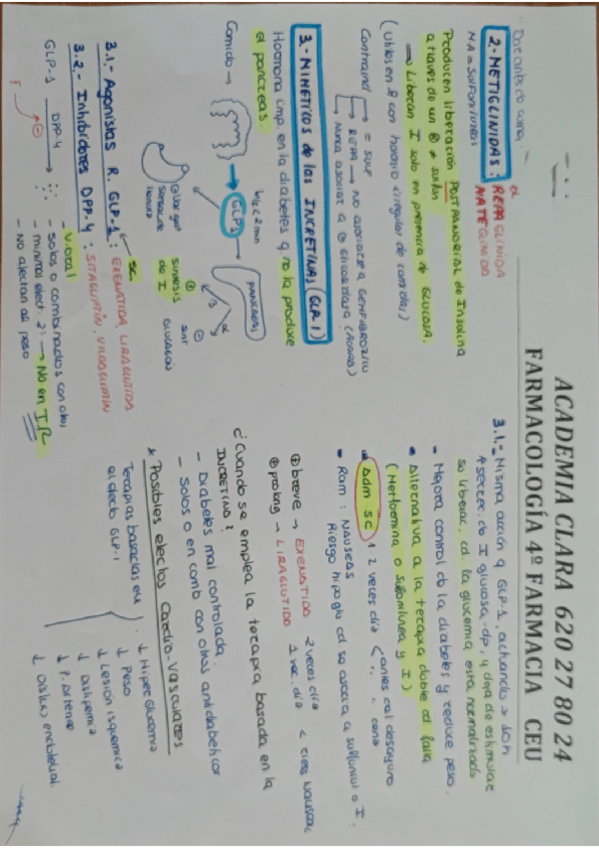 ACADEMIA CLARA 620 27 80 24
FARMACOLOGÍA 4º FARMACIA CEU
2.- METIGLINIDAS : REPAGLINIDA
NATEGLINIDA
MA = Sulfonilureas
Producen liberación POSTPANDRIAL de Insulina
a través de un ® ≠ sulfon
→ Liberan I solo en presencia de GLUCOSA.
(Utiles en P con horario irregular de comidas)
Contraind → = sulf
→ REPA → no asociar a GEMFIBROZILO
→ Nunca asociar a
3.- MIMETICOS de las INCRETINAS (GLP-1)
Hormona imp en la diabetes q no la produce
el pancreas.
Comida →
GLP1
t1/2 < 2 min
PANCREAS
β α
sintesis
de I
sint
glucagon
3.1.- Agonistas R. GLP-1 : EXENATIDA, LIRAGLUTIDA
SC
3.2.- Inhibidores DPP-4 : SITAGLIPTIN, VILDAGLIPTIN
GLP-1 DPP-4 →
- V. oral
- solos o combinados con otros
- minimos efect. 2: → No en I.R
- No afectan al peso
3.1.- Misma acción q GLP-1, actuando s son
↑ secrec de I glucosa dp, y deja de estimular
su liberac, cd la glucemia esta normalizada
- Mejora control de la diabetes y reduce peso.
- Alternativa a la terapia doble cd falla
(Metformina o sulfonilurea y I)
- Adm SC 1 2 veces dia < antes del desayuno
" " cena
- Ram : NAUSEAS
Riesgo hipoglu cd se asocia a sulfonil o I.
⊕ breve → EXENATIDO 2 veces dia
⊕ prolong → LIRAGLUTIDO 1 vez. dia < efec nauseas
¿Cuando se emplea la terapia basada en la
INCRETINA?
- Diabetes mal controlada.
- Solos o en comb con otros antidiabeticos
* Posibles efectos Cardio-Vasculares
Terapias basadas en
el efecto GLP-1
↓ Hiper Glucemia
↓ Peso
↓ Lesión isquemica
↓ Dislipemia
↓ P. Arterial
↓ Disfunc endotelial.